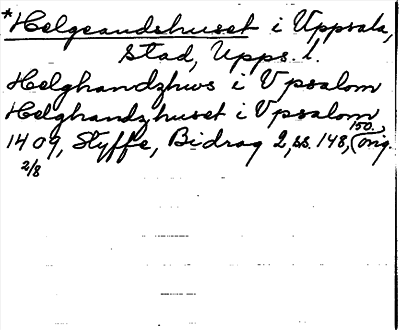 *Helgeandshuset i Uppsala,
stad, Upps. l.
Helghandzhws i Vpsalom
Helghandzhuset i Vpsalom
150.,
1409, Styffe, Bidrag 2, ss. 148, (orig.
2/8